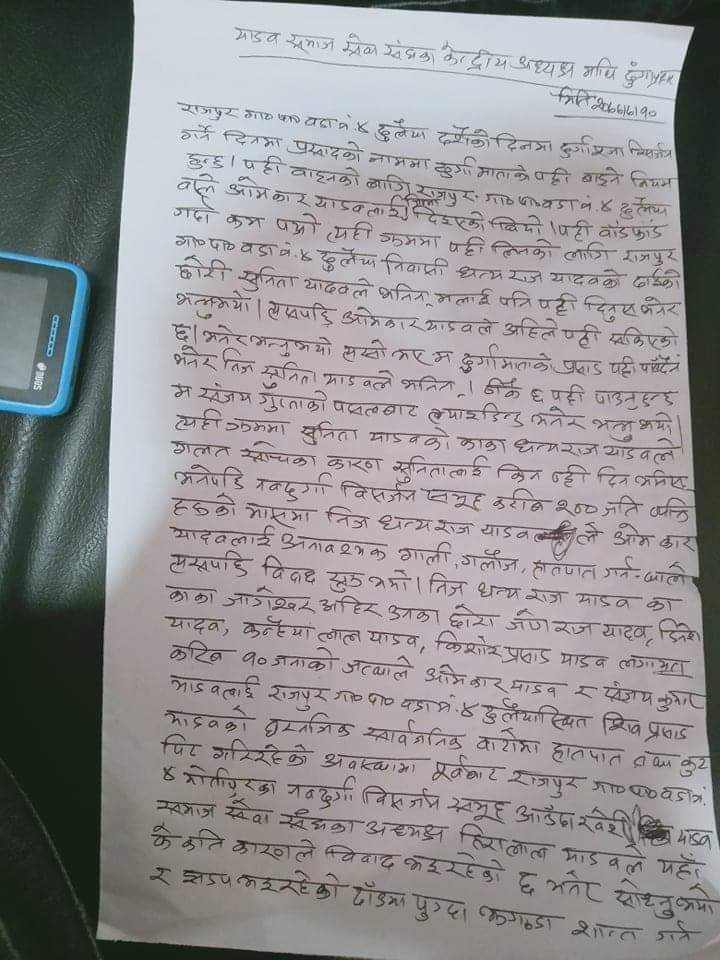 यादव समाज सेवा संघका केन्द्रीय अध्यक्ष माथि दुंगाप्रहार
मिति २०७६।६।९०
राजपुर गा०पा० वडा नं. ४ दुलैया दशैंको दिनमा दुर्गा पूजा विसर्जन
गर्ने दिनमा प्रसादको नाममा दुर्गा माताके पही बाड्ने नियम
हुन्छ। पही बाड्नको लागि राजपुर गा०पा० वडा नं. ४ दुलैया
वस्ने ओमकार यादवलाई जिम्मा दिइएको थियो। पही बांडफांड
गर्दा कम पर्‍यो त्यही क्रममा पही लिनको लागि राजपुर
गा०पा० वडा नं. ४ दुलैया निवासी धत्यराज यादवको दाईको
छोरी सुनिता यादवले भनिन् मलाई पनि पही दिनुस भनेर
भन्नुभयो। त्यसपछि ओमकार यादवले अहिले पही सकिएको
छ। भनेर भन्नुभयो त्यसो भए म दुर्गामाताको प्रसाद पही पाउँदैन
भनेर निज सुनिता यादवले भनिन्। ठीकै छ पही पाउनुहुन्छ
म संजय गुप्ताको पसलबाट ल्याइदिन्छु भनेर भन्नुभयो।
त्यही क्रममा सुनिता यादवको काका धत्यराज यादवले
गलत सोचका कारण सुनितालाई किन पही दिन
भनेपछि नवदुर्गा विसर्जन समूह करीब २०० जति व्यक्ति
हरुको माझमा निज धत्यराज यादव ले ओमकार
यादवलाई अनावश्यक गाली, गलौज, हातपात गर्न थाले
त्यसपछि विवाद सुरु भयो। निज धत्यराज यादव का
काका जोगेश्वर अहिर उनका छोरा जोगराज यादव, दिनेश
यादव, कन्हैया लाल यादव, किशोर प्रसाद यादव लगायत
करिब १० जनाको जत्थाले ओमकार यादव र संजय कुमार
यादवलाई राजपुर गा०पा० वडा नं. ४ दुलैयास्थित शिव प्रसाद
यादवको सार्वजनिक बाटोमा हातपात तथा कुट
पिट गरिरहेको अवस्थामा पूर्वबाट राजपुर गा०पा० वडा नं.
४ मोतीपुरका नवदुर्गा विसर्जन समूह आउँदा खेरी यादव
समाज सेवा संघका अध्यक्ष हिरालाल यादवले यहाँ
के कति कारणले विवाद भइरहेको छ भनेर सोध्नुभयो
र झडप भइरहेको ठाँउमा पुग्दा झगडा शान्त गर्न
ASUS